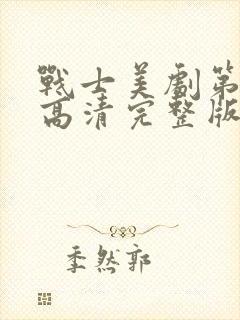 戰士美劇第
高清完整版
季然郭